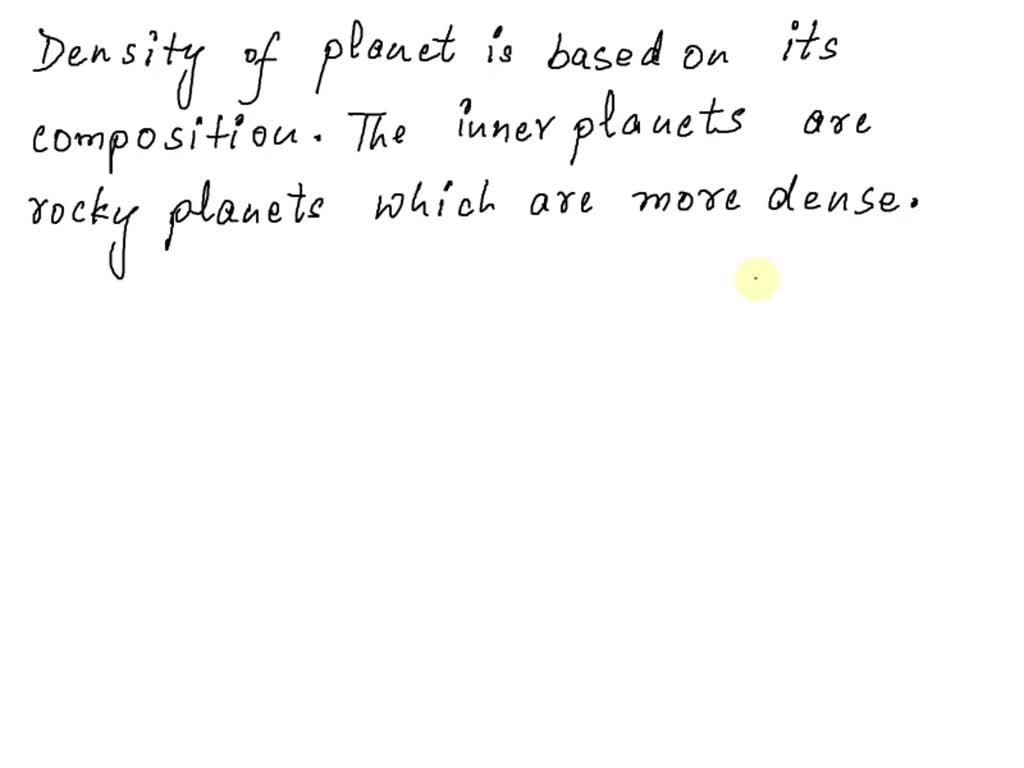 Density of planet is based on its
composition. The inner planets are
rocky planets which are more dense.